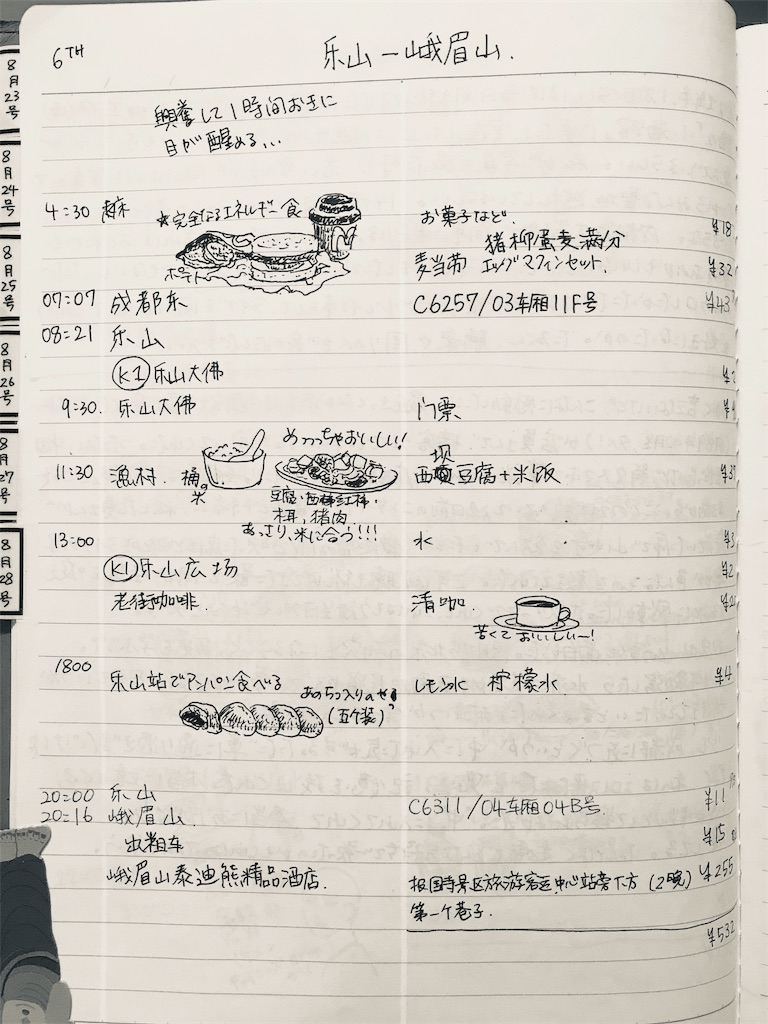 6TH
乐山－峨眉山.
8月23号
8月24号
8月25号
8月26号
8月27号
8月28号
興奮して1時間おきに
目が醒める...
4:30 起床
☆完全なるエネルギー食
ポテト
お菓子など.
¥18
猪柳蛋麦满分
麦当劳 エッグマフィンセット.
¥32
07:07 成都东
C6257/03车厢11F号
¥43
08:21 乐山
K1 乐山大佛
¥2
9:30. 乐山大佛
门票
11:30 漁村. 桶の米
めっっちゃおいしい!
西坝豆腐+米饭
豆腐・西红柿・
木耳,猪肉
あっさり,米に合う!!!
13:00
水
¥3
K1 乐山広场
¥2
老街咖啡.
清咖.
苦くておいしいー!
1800
乐山站でアンパン食べる
レモン水 柠檬水
¥4
あの5つ入りのやつ
(五个装)
20:00 乐山
C6311/04车厢04B号.
¥11
20:16 峨眉山.
出租车
¥15
峨眉山泰迪熊精品酒店.
报国寺景区旅游客运中心站旁下方 (2晚)
¥255
第一个巷子.
¥532